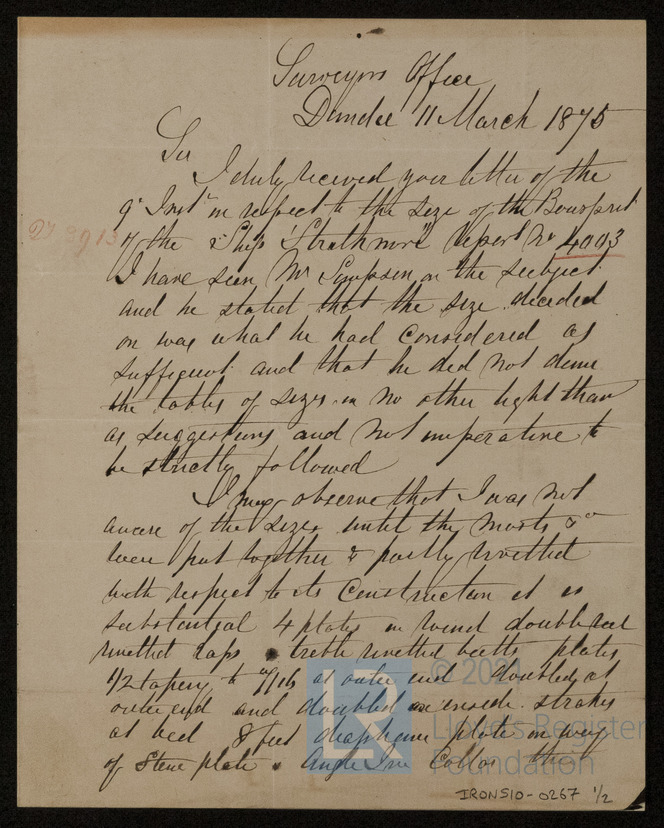 Surveyors Office
Dundee 11 March 1875
Sir
I duly received your letter of the
9th Inst in respect to the size of the Bowsprit
of the Ship "Strathmore" Report No 4003
I have seen Mr Simpson on the subject
and he stated that the size decided
on was what he had considered as
sufficient and that he did not deem
the tables of sizes in no other light than
as suggestions and not imperative to
be strictly followed
I may observe that I was not
aware of the sizes until the masts &c
were put together & partly rivetted
with respect to its Construction it is
substantial 4 plates in round double
rivetted laps treble rivetted butts plates
1/2 taper to 7/16 at outer end doubled at
outer end and doubled on inside strakes
at bed 8 feet diaphram plate in way
of Stem plate & Angle Iron Collar
© 202
Lloyd's Register
Foundation
LR
IRONS10-0267 1/2